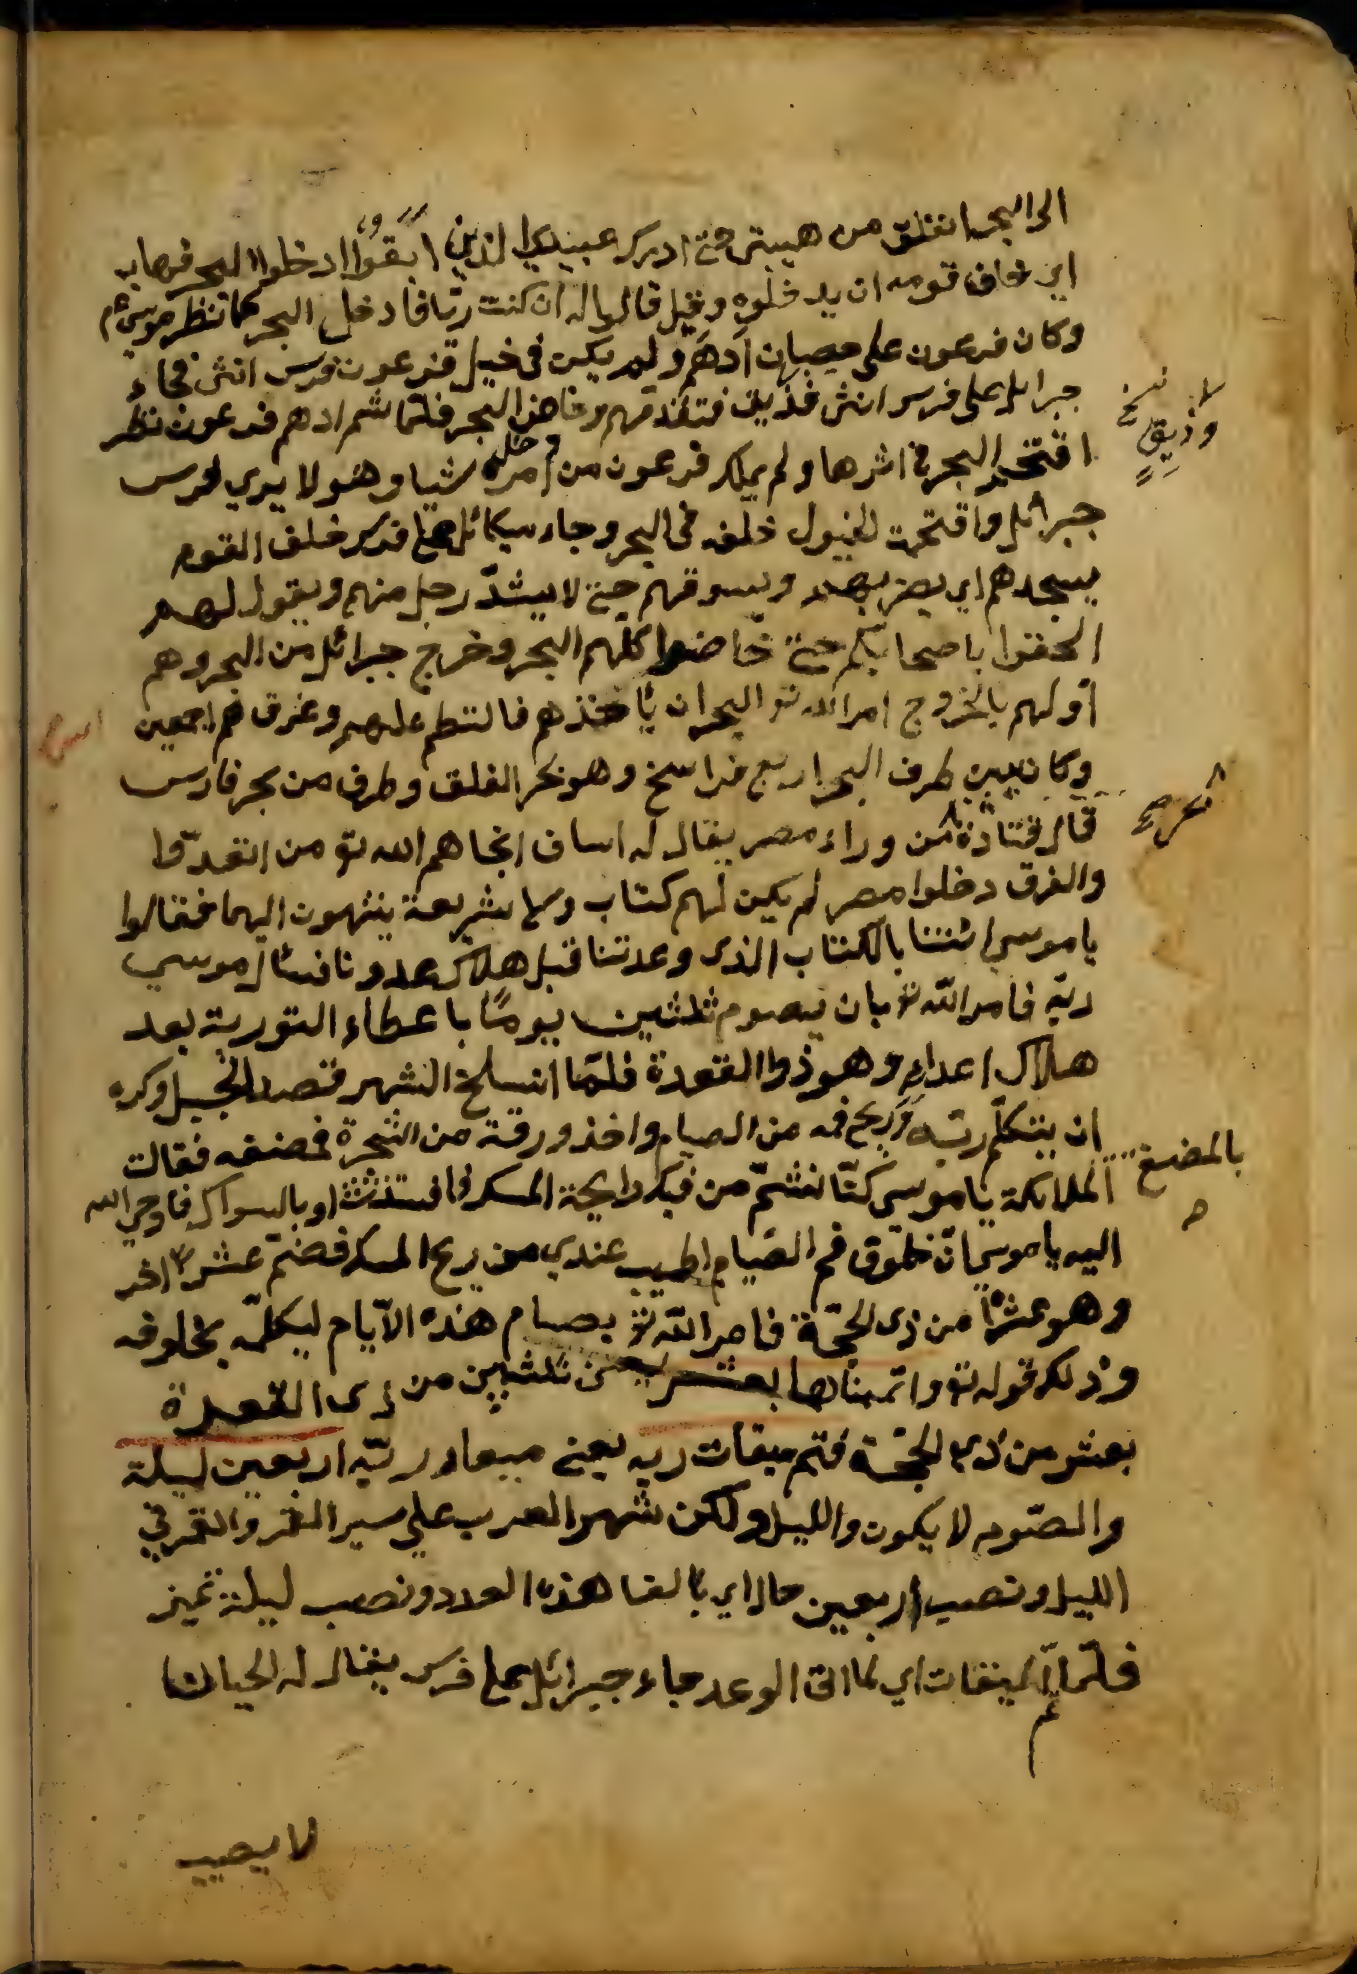 الى البحر انفلق من هيبتي حتى ادرك عبيدي الذين ابقوا ادخلوا البحر فهاب
اي خاف قومه ان يدخلوه وقيل قالوا له ان كنت ربا فادخل البحر كما تنظر موسى عم
وكان فرعون على حصان ادهم ولم يكن في خيل فرعون فرس انثى فجاء
جبرائل على فرس انثى فذيق فتقدمهم وخاض البحر فلما شم ادهم فرعون نظر
اقتحم البحر في اثرها ولم يملك فرعون من امره شيا وهو لا يرى فرس
جبرائل واقتحمت الخيول خلفه في البحر وجاء ميكائل على فرس خلف القوم
يسحدهم اي يضربهم ويسوقهم حتى لا يشذ رجل منهم ويقول لهم
الحقوا باصحابكم حتى خاضوا كلهم البحر وخرج جبرائل من البحر وهم
اولهم بالخروج امر الله تع البحر ان ياخذهم فالتطم عليهم وغرق هم اجمعين
وكان بين طرف البحر اربع فراسخ وهو بحر القلق وطرف من بحر فارس
قال قتادة من وراء مصر يقال له اساف انجاهم الله تع من
والغرق دخلوا مصر لم يكن لهم كتاب ولا شريعة ينتهون اليها فقالوا
يا موسى ائتنا بالكتاب الذى وعدتنا قبل هلاك عدونا فسال موسى
ربه فامر الله تع بان يصوم ثلثين يوما باعطاء التورية بعد
هلاك اعدائه وهو ذوا القعدة فلما انسلخ الشهر قصد الجبل وكره
ان يتكلم ربه وريح فمه من الصيام واخذ ورقة من الشجرة فمضغه فقالت
الملائكة يا موسى كنا نشم من فيك رايحة المسك فافسدت بالسواك فاوحى الله
اليه يا موسى ان خلوق فم الصيام اطيب عندي من ريح المسك فضم عشرا اخر
وهو عشرا من ذى الحجة فامر الله تع بصيام هذه الايام ليكلمه بخلوفه
وذلك قوله تع واتممناها بعشر يعنى ثلثين من ذى القعدة
بعشر من ذى الحجة فتم ميقات ربه يعني ميعاد ربه اربعين ليلة
والصوم لا يكون والليل ولكن شهور العرب على سير القمر والقمر في
الليل ونصب اربعين حال اي بالغا هذه العدد ونصب ليلة تميز
فلما الميقات اي لما اتى الوعد جاء جبرائل على فرس يقال له الحياة
لا يصيب
وذيق
نسخ
بحر صح
بالمضغ